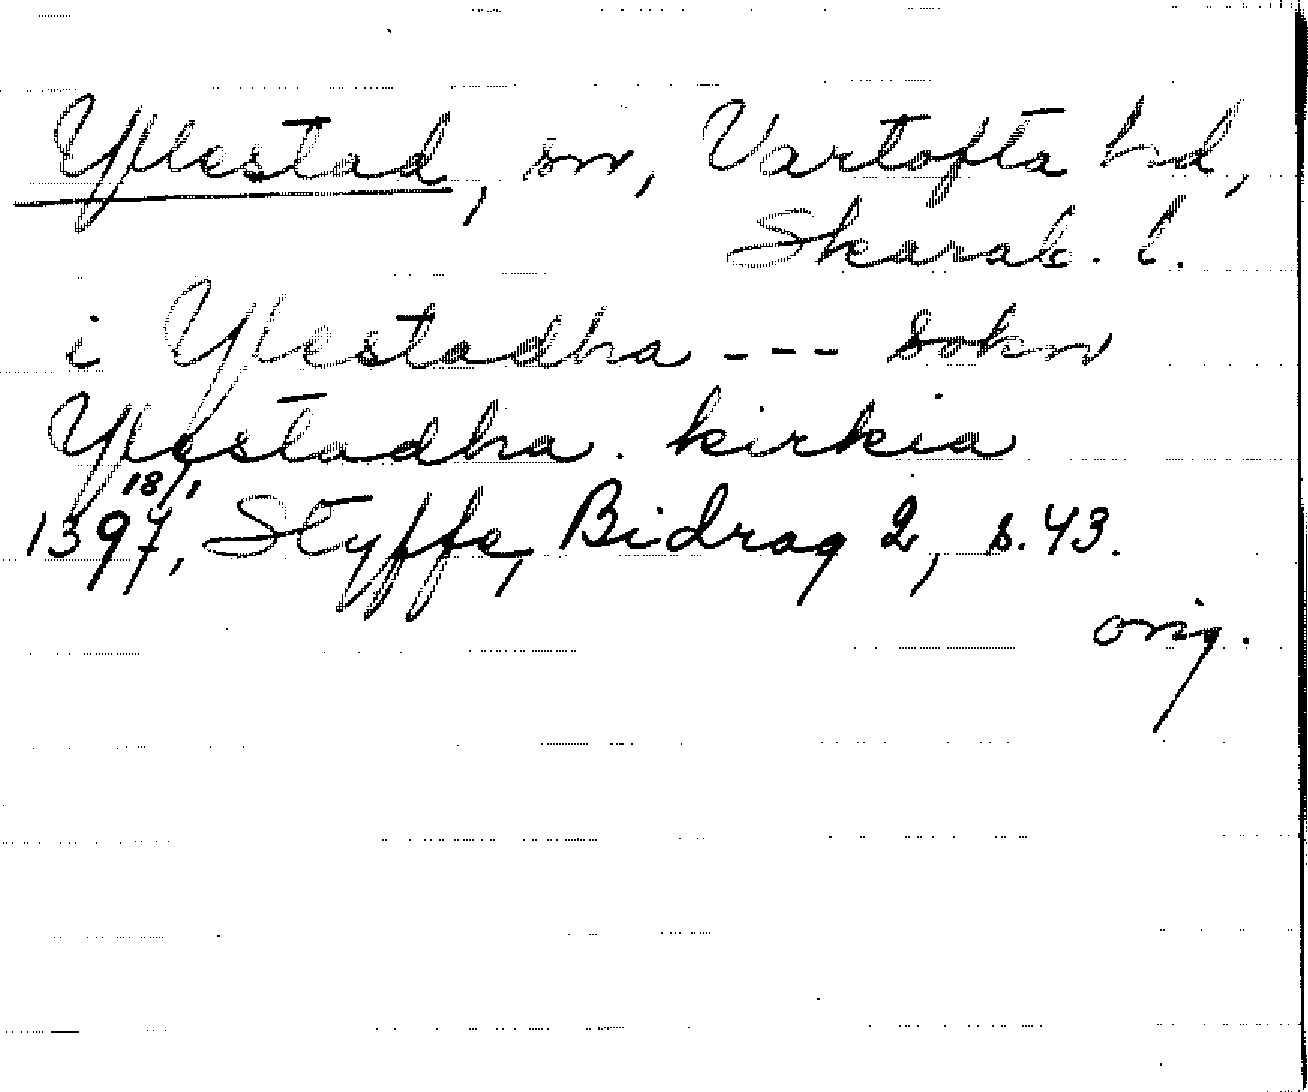 Yllestad, sn, Vartofta hd,
Skarab. l.
i Ylestadha --- sokn
Ylestadha kirkia
18/1
1397, Styffe, Bidrag 2, s. 43.
orig.